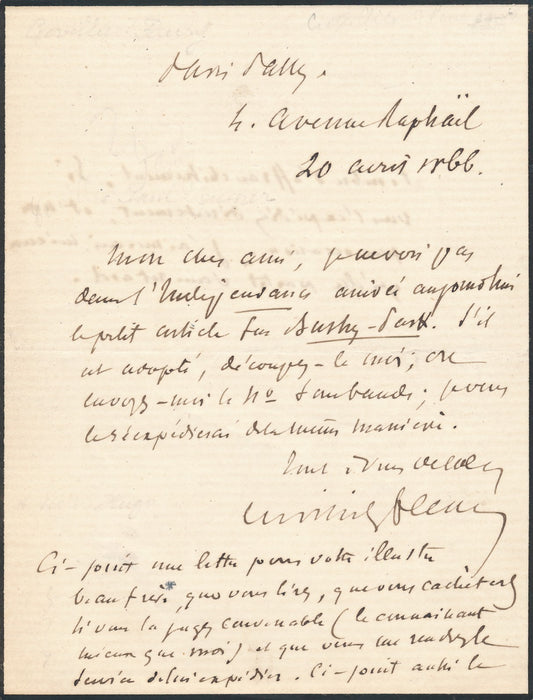 Paris Passy.
4. avenue Raphaël
20 avril 1866.
Mon cher ami, je ne vois pas
dans l'Indépendance arrivée aujourd'hui
le petit article sur Bushy-Park. S'il
est adopté, découpez-le moi; ou
envoyez-moi le No sous bande; je vous
le réexpédierai de la même manière.
Tout à vous de cœur
Ci-joint une lettre pour votre illustre
beau frère, que vous lirez, que vous cachèterez
si vous la jugez convenable (le connaissant
mieux que moi) et que vous me rendrez le
service de lui expédier. Ci-joint aussi le